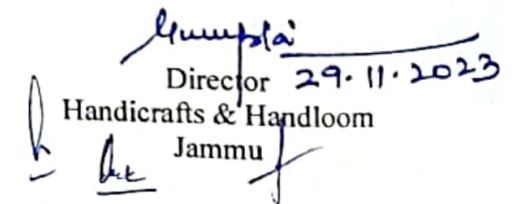 Director 29.11.2023
Handicrafts & Handloom
Jammu